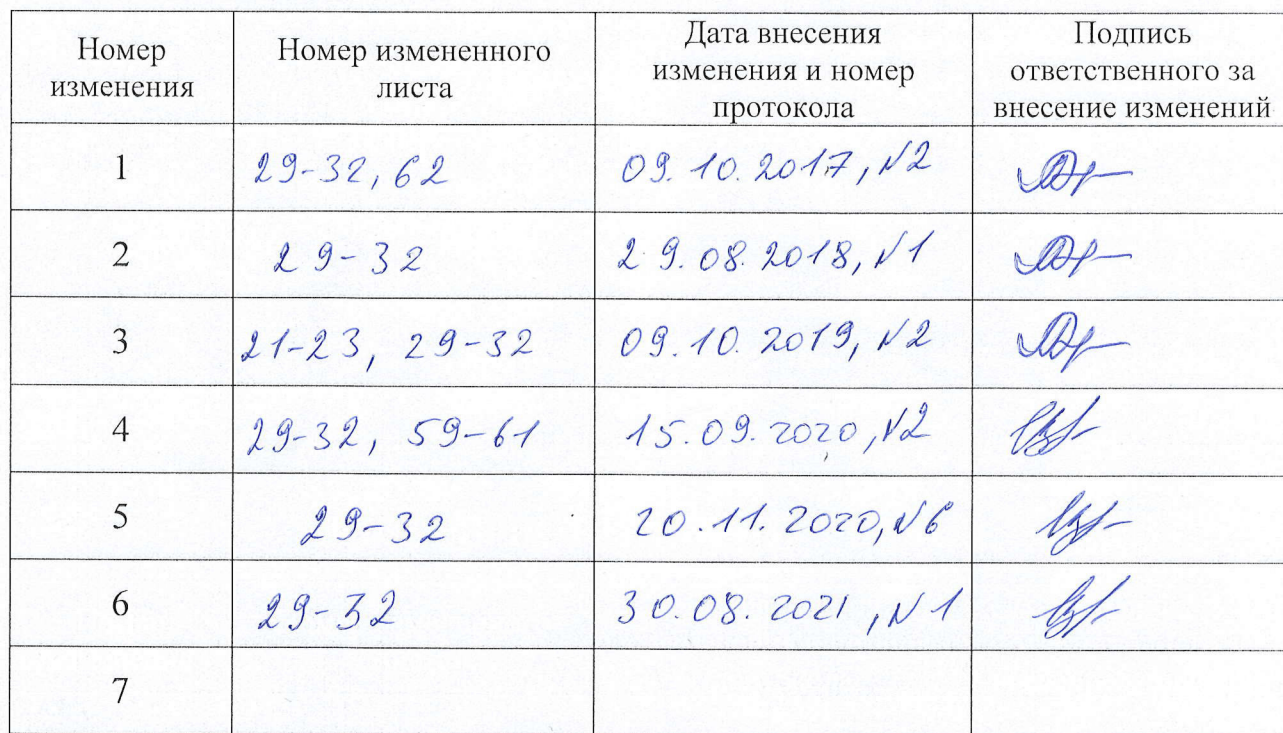 Номер изменения
Номер измененного листа
Дата внесения изменения и номер протокола
Подпись ответственного за внесение изменений
1
29-32, 62
09.10.2017, №2
2
29-32
29.08.2018, №1
3
21-23, 29-32
09.10.2019, №2
4
29-32, 59-61
15.09.2020, №2
5
29-32
20.11.2020, №6
6
29-32
30.08.2021, №1
7